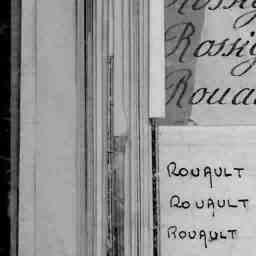 Rossig
Rossig
Roua
ROUAULT
ROUAULT
ROUAULT